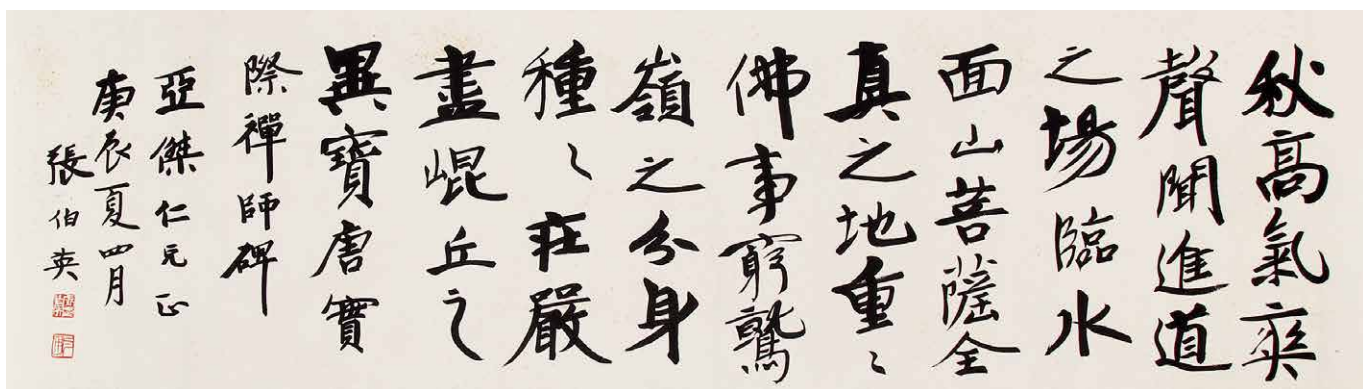 秋高氣爽
聲聞進道
之場臨水
面山菩薩全
真之地重〻
佛事窮鷲
嶺之分身
種〻莊嚴
盡崐丘之
異寶唐實
際禪師碑
亞傑仁兄正
庚辰夏四月
張伯英